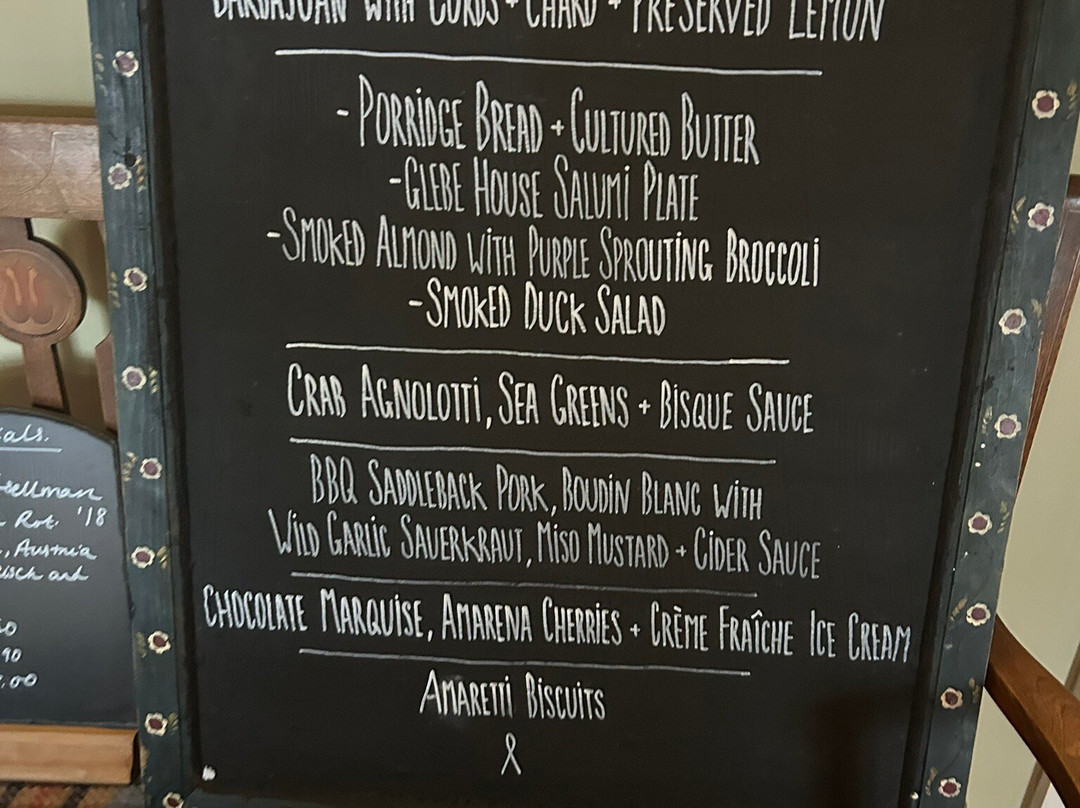 BARBAJUAN WITH CURDS + CHARD + PRESERVED LEMON
- PORRIDGE BREAD + CULTURED BUTTER
- GLEBE HOUSE SALUMI PLATE
- SMOKED ALMOND WITH PURPLE SPROUTING BROCCOLI
- SMOKED DUCK SALAD
CRAB AGNOLOTTI, SEA GREENS + BISQUE SAUCE
BBQ SADDLEBACK PORK, BOUDIN BLANC WITH
WILD GARLIC SAUERKRAUT, MISO MUSTARD + CIDER SAUCE
CHOCOLATE MARQUISE, AMARENA CHERRIES + CRÈME FRAÎCHE ICE CREAM
AMARETTI BISCUITS
Rot. '18
, Austria
90